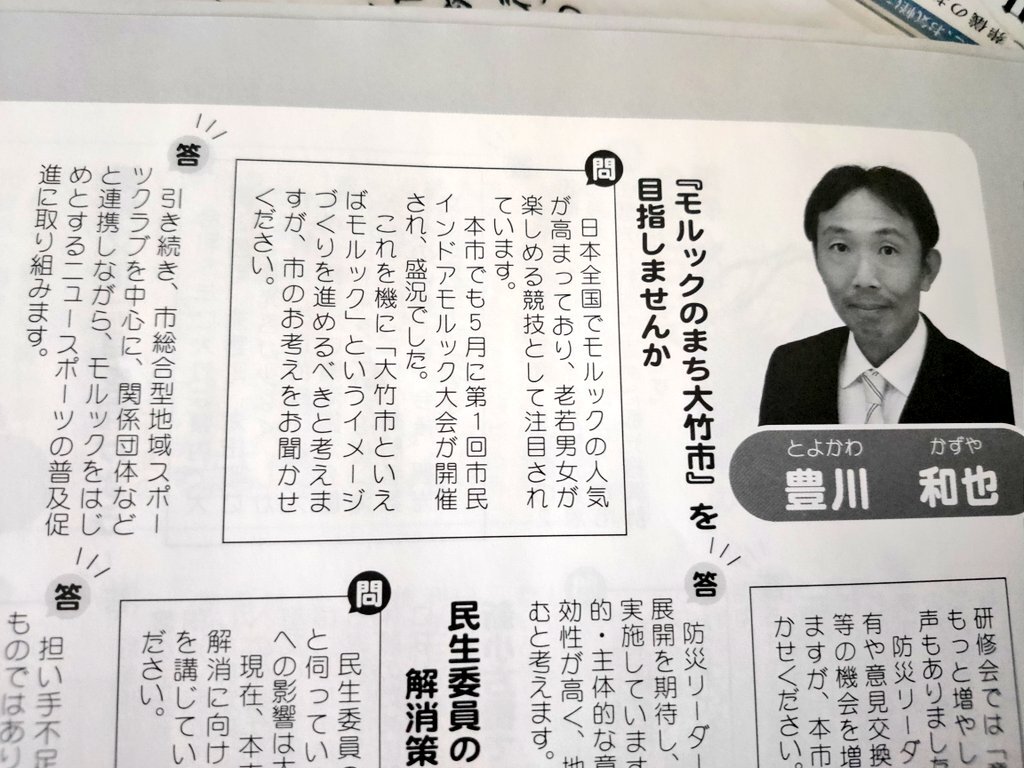 とよかわ かずや
豊川 和也
『モルックのまち大竹市』を
目指しませんか
問
日本全国でモルックの人気
が高まっており、老若男女が
楽しめる競技として注目され
ています。
本市でも5月に第1回市民
インドアモルック大会が開催
され、盛況でした。
これを機に「大竹市といえ
ばモルック」というイメージ
づくりを進めるべきと考えま
すが、市のお考えをお聞かせ
ください。
答
引き続き、市総合型地域スポー
ツクラブを中心に、関係団体など
と連携しながら、モルックをはじ
めとするニュースポーツの普及促
進に取り組みます。
研修会では「
もっと増やし
声もありまし
防災リーダ
有や意見交換
等の機会を増
ますが、本市
かせください。
答
防災リーダー
展開を期待し、
実施しています
的・主体的な意
効性が高く、地
むと考えます。
民生委員の
解消策
問
民生委員の
と伺ってい
への影響は
現在、本
解消に向け
を講じてい
ださい。
答
担い手不足
ものではあり